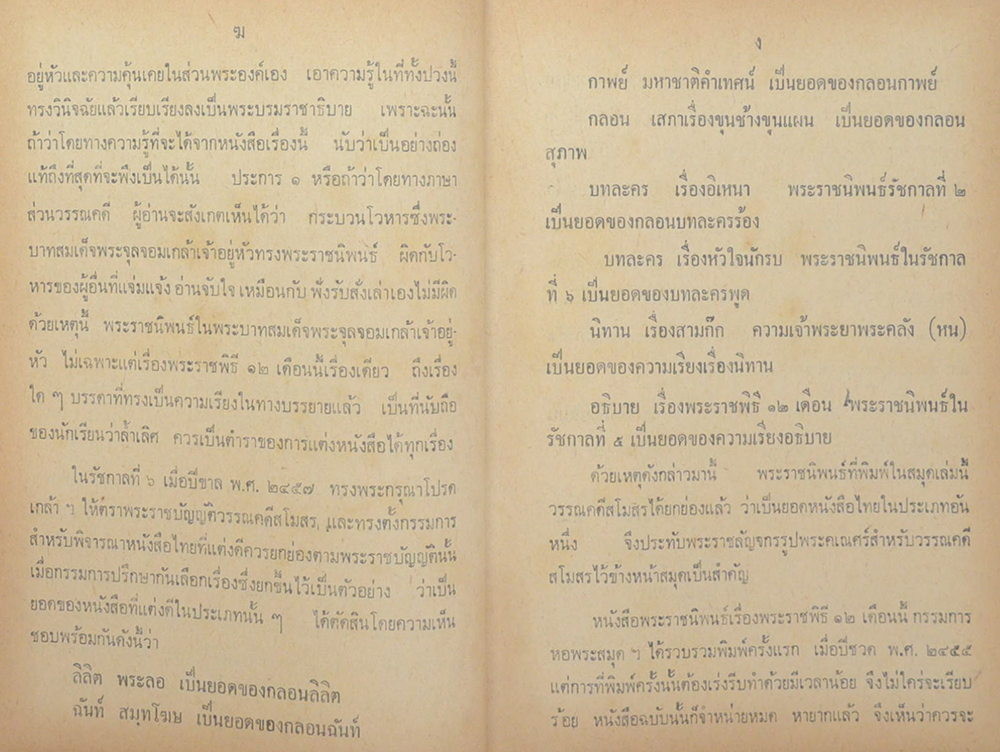 ฆ
อยู่หัวและความคุ้นเคยในส่วนพระองค์เอง เอาความรู้ในที่ทั้งปวงนี้
ทรงวินิจฉัยแล้วเรียบเรียงลงเป็นพระบรมราชาธิบาย เพราะฉะนั้น
ถ้าว่าโดยทางความรู้ที่จะได้จากหนังสือเรื่องนี้ นับว่าเป็นอย่างถ่อง
แท้ถึงที่สุดที่จะพึงเป็นได้นั้น ประการ ๑ หรือถ้าว่าโดยทางภาษา
ส่วนวรรณคดี ผู้อ่านจะสังเกตเห็นได้ว่า กระบวนโวหารซึ่งพระ-
บาทสมเด็จพระจุลจอมเกล้าเจ้าอยู่หัวทรงพระราชนิพนธ์ ผิดกับโว-
หารของผู้อื่นที่แจ่มแจ้ง อ่านจับใจ เหมือนกับ ฟังรับสั่งเล่าเองไม่มีผิด
ด้วยเหตุนี้ พระราชนิพนธ์ในพระบาทสมเด็จพระจุลจอมเกล้าเจ้าอยู่-
หัว ไม่เฉพาะแต่เรื่องพระราชพิธี ๑๒ เดือนนี้เรื่องเดียว ถึงเรื่อง
ใด ๆ บรรดาที่ทรงเป็นความเรียงในทางบรรยายแล้ว เป็นที่นับถือ
ของนักเรียนว่าล้ำเลิศ ควรเป็นตำราของการแต่งหนังสือได้ทุกเรื่อง
ในรัชกาลที่ ๖ เมื่อปีขาล พ.ศ. ๒๔๕๗ ทรงพระกรุณาโปรด
เกล้า ฯ ให้ตราพระราชบัญญัติวรรณคดีสโมสร และทรงตั้งกรรมการ
สำหรับพิจารณาหนังสือไทยที่แต่งดีควรยกย่องตามพระราชบัญญัตินั้น
เมื่อกรรมการปรึกษากันเลือกเรื่องซึ่งยกขึ้นไว้เป็นตัวอย่าง ว่าเป็น
ยอดของหนังสือที่แต่งดีในประเภทนั้น ๆ ได้ตัดสินโดยความเห็น
ชอบพร้อมกันดังนี้ว่า
ลิลิต พระลอ เป็นยอดของกลอนลิลิต
ฉันท์ สมุทโฆษ เป็นยอดของกลอนฉันท์
ง
กาพย์ มหาชาติคำเทศน์ เป็นยอดของกลอนกาพย์
กลอน เสภาเรื่องขุนช้างขุนแผน เป็นยอดของกลอน
สุภาพ
บทละคร เรื่องอิเหนา พระราชนิพนธ์รัชกาลที่ ๒
เป็นยอดของกลอนบทละครร้อง
บทละคร เรื่องหัวใจนักรบ พระราชนิพนธ์ในรัชกาล
ที่ ๖ เป็นยอดของบทละครพูด
นิทาน เรื่องสามก๊ก ความเจ้าพระยาพระคลัง (หน)
เป็นยอดของความเรียงเรื่องนิทาน
อธิบาย เรื่องพระราชพิธี ๑๒ เดือน พระราชนิพนธ์ใน
รัชกาลที่ ๕ เป็นยอดของความเรียงอธิบาย
ด้วยเหตุดังกล่าวมานี้ พระราชนิพนธ์ที่พิมพ์ในสมุดเล่มนี้
วรรณคดีสโมสรได้ยกย่องแล้ว ว่าเป็นยอดหนังสือไทยในประเภทอัน
หนึ่ง จึงประทับพระราชลัญจกรรูปพระคเณศร์สำหรับวรรณคดี
สโมสรไว้ข้างหน้าสมุดเป็นสำคัญ
หนังสือพระราชนิพนธ์เรื่องพระราชพิธี ๑๒ เดือนนี้ กรรมการ
หอพระสมุด ฯ ได้รวบรวมพิมพ์ครั้งแรก เมื่อปีชวด พ.ศ. ๒๔๕๕
แต่การที่พิมพ์ครั้งนั้นต้องเร่งรีบทำด้วยมีเวลาน้อย จึงไม่ใคร่จะเรียบ
ร้อย หนังสือฉบับนั้นก็จำหน่ายหมด หายากแล้ว จึงเห็นว่าควรจะ